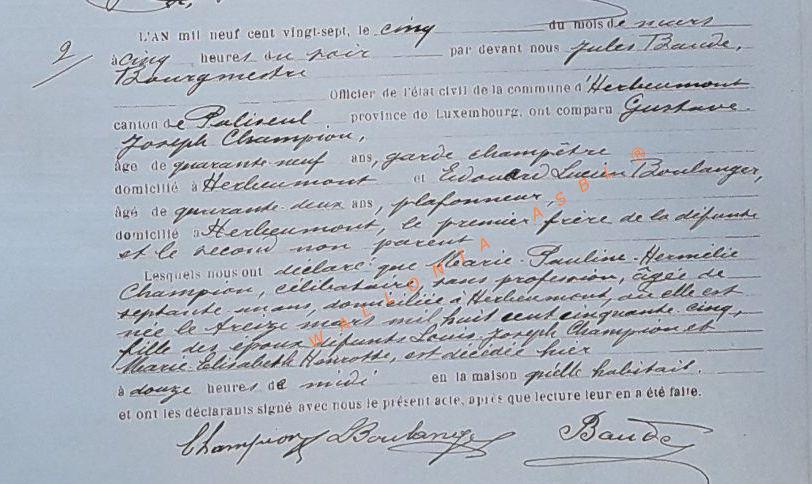 2
L'AN mil neuf cent vingt-sept, le cinq du mois de mars
à cinq heures du soir par devant nous Jules Baude,
Bourgmestre
Officier de l'état civil de la commune d'Herbeumont
canton de Paliseul province de Luxembourg, ont comparu Gustave
Joseph Champion,
âgé de quarante-neuf ans, garde champêtre
domicilié à Herbeumont et Edouard Lucien Boulanger,
âgé de quarante-deux ans, plafonneur,
domicilié à Herbeumont, le premier frère de la défunte
et le second non parent
Lesquels nous ont déclaré que Marie-Pauline-Hermélie
Champion, célibataire, sans profession, âgée de
septante un ans, domiciliée à Herbeumont, où elle est
née le treize mars mil huit cent cinquante-cinq,
fille des époux défunts Louis-Joseph Champion et
Marie-Elisabeth Henrotte, est décédée hier
à douze heures de midi en la maison qu'elle habitait.
et ont les déclarants signé avec nous le présent acte, après que lecture leur en a été faite.
Champion LBoulanger Baude
WALLONIA ASBL ®